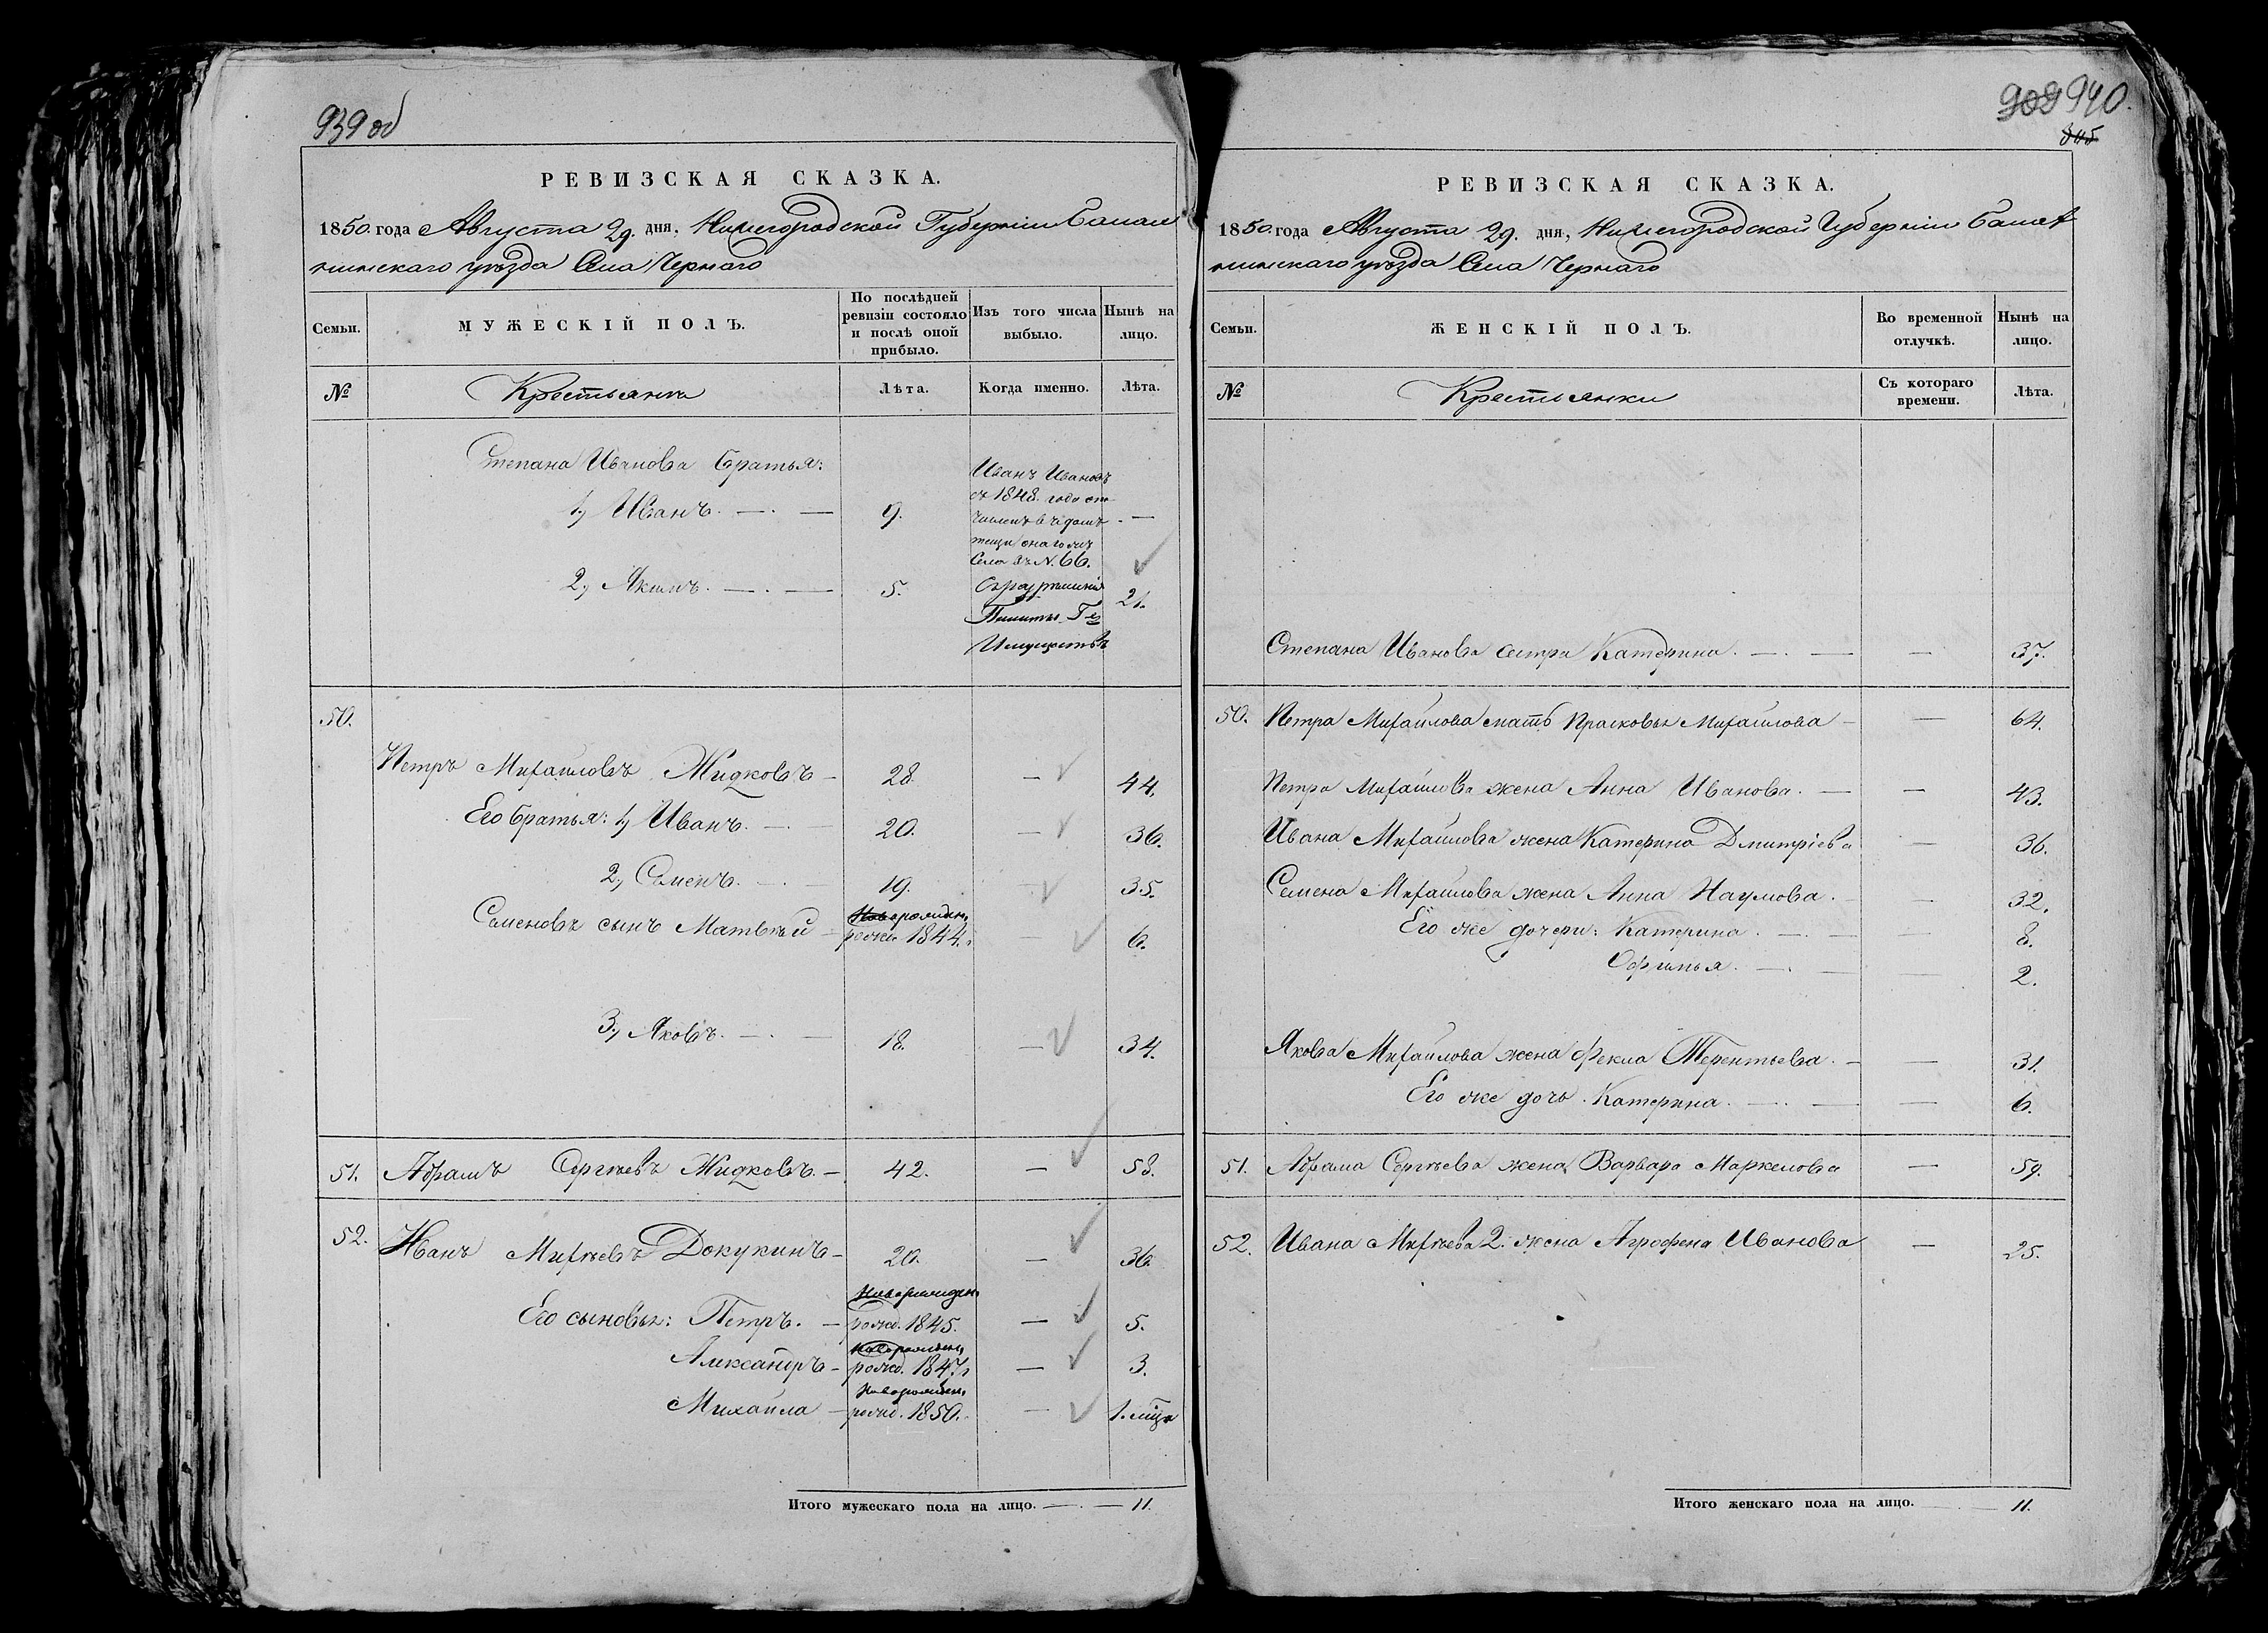 939 об
РЕВИЗСКАЯ СКАЗКА.
1850. года Августа 29. дня. Нижегородской Губерніи Балах
нинскаго уѣзда Села Чернаго
Семьи.
МУЖЕСКІЙ ПОЛЪ.
По послѣдней ревизіи состояло и послѣ оной прибыло.
Изъ того числа выбыло.
Нынѣ на лицо.
№
Крестьяне
Лѣта.
Когда именно.
Лѣта.
Степана Иванова братья:
1, Иванъ. — . — 9. —
Иванъ Ивановъ
съ 1848. года
тещи
Села въ N. 66.
2, Якимъ. — . — 5. 21.
Имуществъ
50.
Петръ Михайловъ Жидковъ — 28. — 44.
Его братья: 1, Иванъ. — 20. — 36.
2, Семенъ. — 19. — 35.
Новорожден.
Семеновъ сынъ Матвѣй — рожд. 1844. — 6.
3, Яковъ. — . — 18. — 34.
51. Абрамъ Сергѣевъ Жидковъ. — 42. — 58.
52. Иванъ Михѣевъ Докукинъ — 20. — 36.
Новорожден.
Его сыновья: Петръ. — рожд. 1845. — 5.
Новорожден.
Александръ — рожд. 1847. — 3.
Новорожден.
Михайла — рожд. 1850. — 1. мѣся
Итого мужескаго пола на лицо. — . — 11.
908 940.
845
РЕВИЗСКАЯ СКАЗКА.
1850. года Августа 29. дня, Нижегородской Губерніи Балах
нинскаго уѣзда Села Чернаго
Семьи.
ЖЕНСКІЙ ПОЛЪ.
Во временной отлучкѣ.
Нынѣ на лицо.
№
Крестьянки
Съ котораго времени.
Лѣта.
Степана Иванова сестра Катерина. — . — — 37.
50. Петра Михайлова мать Прасковья Михайлова — — 64.
Петра Михайлова жена Анна Иванова. — — 43.
Ивана Михайлова жена Катерина Дмитріева — 36.
Семена Михайлова жена Анна Наумова. — — 32.
Его же дочери: Катерина. — . — — 8.
Офимья. — . — — 2.
Якова Михайлова жена Фекла Терентьева. — — 31.
Его же дочь Катерина. — . — — 6.
51. Абрама Сергѣева жена Варвара Маркелова — 59.
52. Ивана Михѣева 2. жена Агрофена Иванова — 25.
Итого женскаго пола на лицо. — . — 11.